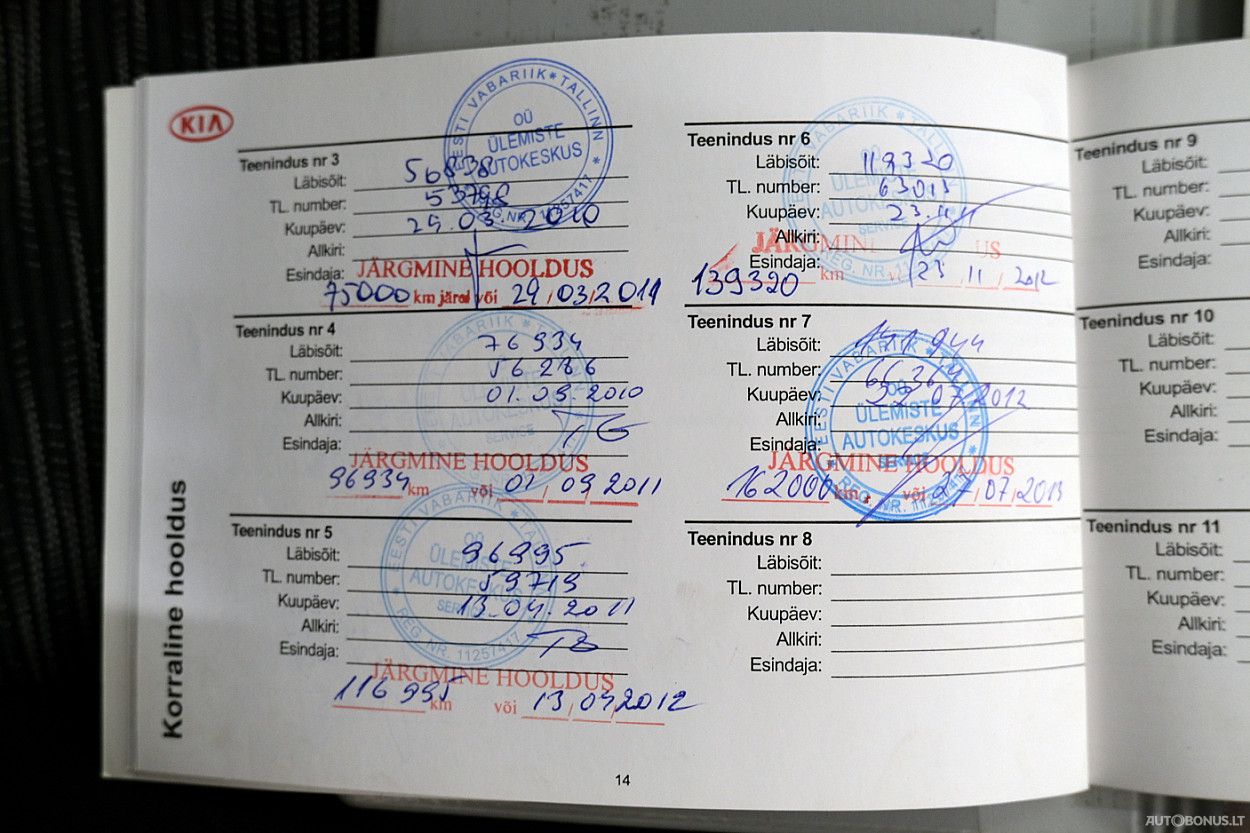 KIA
Korraline hooldus
Teenindus nr 3
Läbisõit: 56838
TL. number: 53798
Kuupäev: 29.03.2010
Allkiri:
Esindaja:
EESTI VABARIIK * TALLINN *
OÜ
ÜLEMISTE
AUTOKESKUS
REG. NR. 11257417
JÄRGMINE HOOLDUS
75000 km järel või 29/03/2011
Teenindus nr 4
Läbisõit: 76934
TL. number: 56286
Kuupäev: 01.09.2010
Allkiri:
Esindaja:
SERVICE
JÄRGMINE HOOLDUS
96934 km või 01/09/2011
Teenindus nr 5
Läbisõit: 96995
TL. number: 59719
Kuupäev: 13.04.2011
Allkiri:
Esindaja:
EESTI VABARIIK * TALLINN *
OÜ
ÜLEMISTE
AUTOKESKUS
REG. NR. 11257417
JÄRGMINE HOOLDUS
116995 km või 13/04/2012
Teenindus nr 6
Läbisõit: 119320
TL. number: 63013
Kuupäev: 23.11
Allkiri:
Esindaja:
EESTI VABARIIK * TALLINN
OÜ
ÜLEMISTE
AUTOKESKUS
SERVICE
139320 km 23/11/2012
Teenindus nr 7
Läbisõit: 141944
TL. number:
Kuupäev: 07.2012
Allkiri:
Esindaja:
EESTI VABARIIK * TALLINN *
OÜ
ÜLEMISTE
AUTOKESKUS
SERVICE
REG. NR. 11257417
JÄRGMINE HOOLDUS
162000 km, või 07/2013
Teenindus nr 8
Läbisõit:
TL. number:
Kuupäev:
Allkiri:
Esindaja:
14
Teenindus nr 9
Läbisõit:
TL. number:
Kuupäev:
Allkiri:
Esindaja:
Teenindus nr 10
Läbisõit:
TL. number:
Kuupäev:
Allkiri:
Esindaja:
Teenindus nr 11
Läbisõit:
TL. number:
Kuupäev:
Allkiri:
Esindaja:
AUTOBONUS.LT